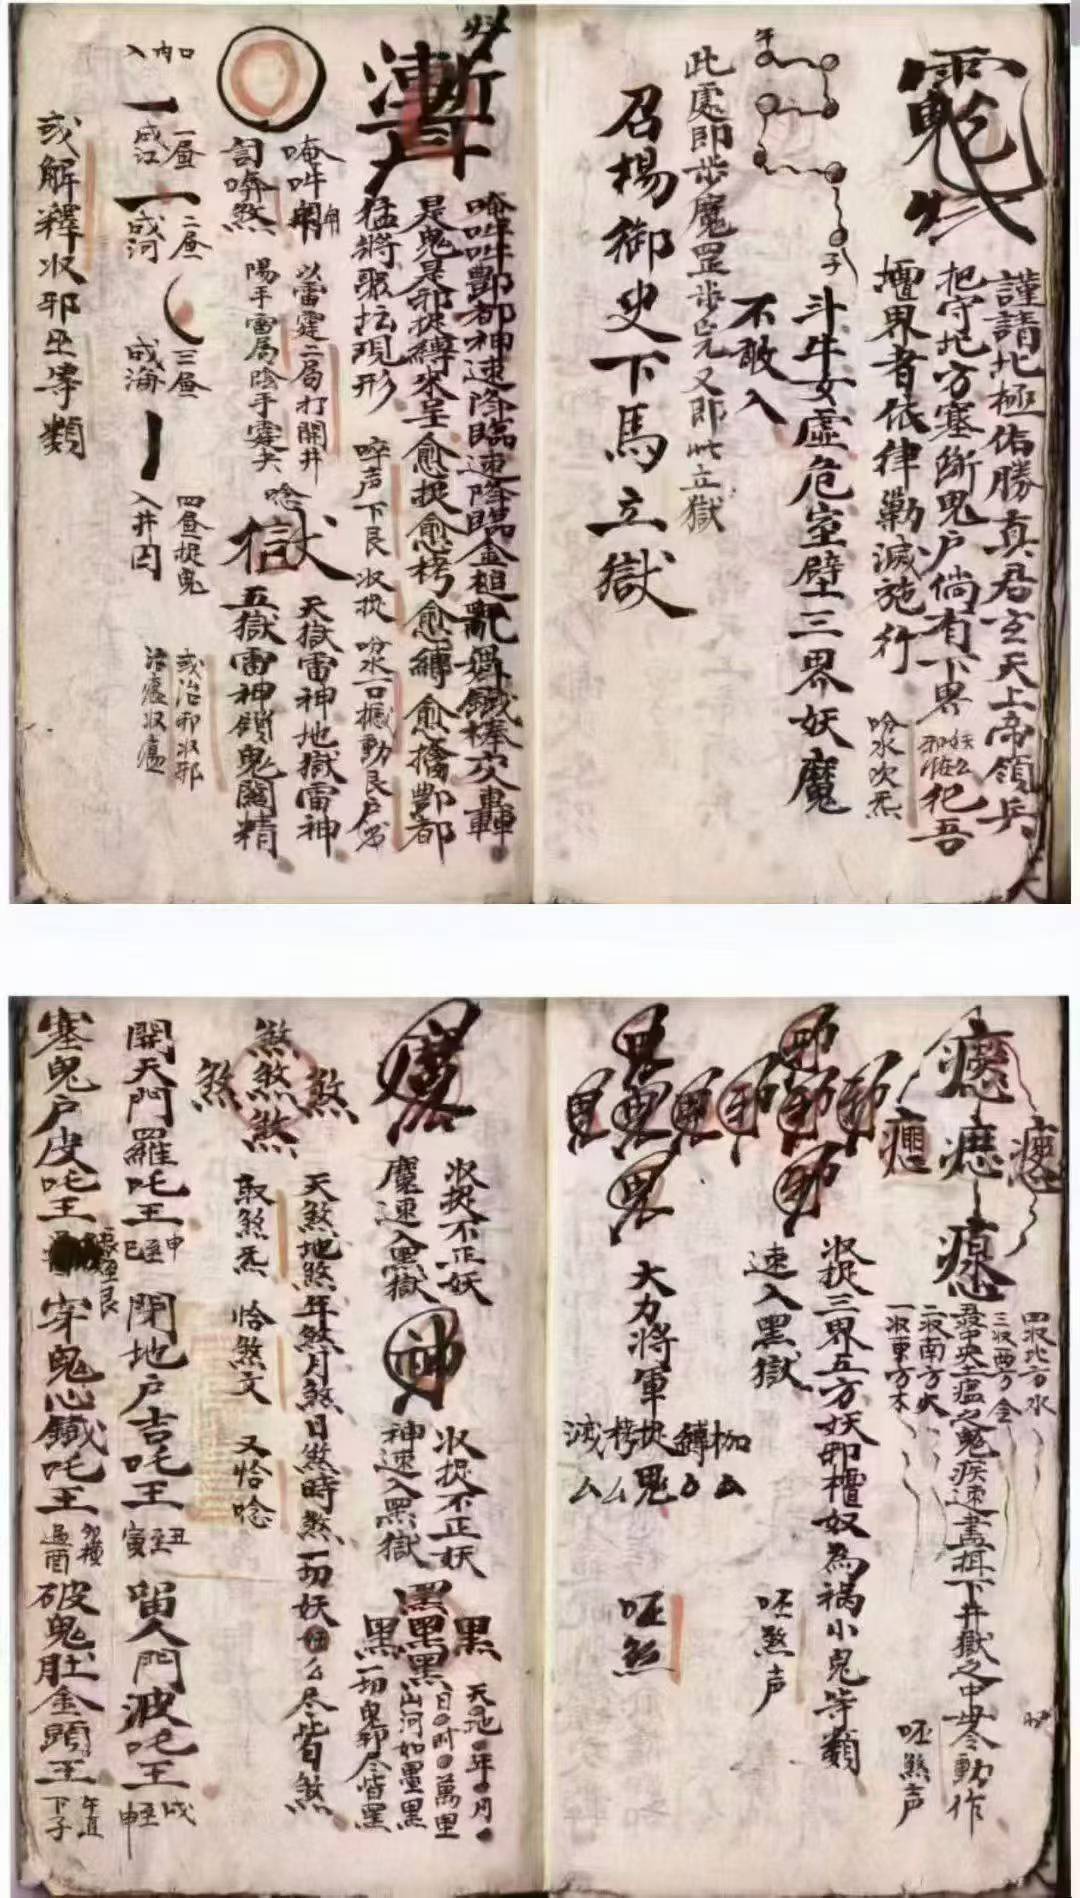 謹請北極佑勝真君玄天上帝領兵
把守地方塞斷鬼戶倘有下界妖么邪怪犯吾
壇界者依律勦滅施行
吩水吹炁
午
子
斗牛女虛危室壁三界妖魔
不敢入
此處即步魔罡步完又即此立獄
召楊御史下馬立獄
唵吽吽酆都神速降臨速降臨金槌亂舞鐵棒交轟
是鬼是邪捉縛來呈愈捉愈栲愈縛愈擒酆都
猛將聚坛現形
啐声下艮
收执
吩水一口撼動艮戶
唵吽
以雷霆二局打開井
天獄雷神地獄雷神
煞
陽手雷局陰手霆夬
唸
獄
五獄雷神鎖鬼關精
口内入
一昼成江
二昼成河
三昼成海
四昼捉鬼
入井囚
或治邪收邪
治瘟收瘟
或解釋收邪巫等類
四收北方水
三收西方金
五收中央土瘟之鬼疾速盡揖下井獄之中
二收南方火
一收東方木
呸煞声
收捉三界五方妖邪檀奴為禍小鬼等類
速入黑獄
呸煞声
大力將軍
枷么
縛么
捉鬼
栲么
滅么
呸煞
收捉不正妖
魔速入黑獄
神
收捉不正妖
神速入黑獄
黑
黑黑黑
黑
天地年月
日時萬里
山河如墨黑
一切鬼邪尽皆黑
煞
煞煞煞
煞
天煞地煞年煞月煞日煞時煞一切妖么尽皆煞
取煞炁
恰煞文
又恰唸
開天門羅吒王
申至巳
閉地戶吉吒王
丑至寅
留人門波吒王
戌至申
塞鬼戶皮吒王
穿鬼心鐵吒王
破鬼肚金頭王
午直下子